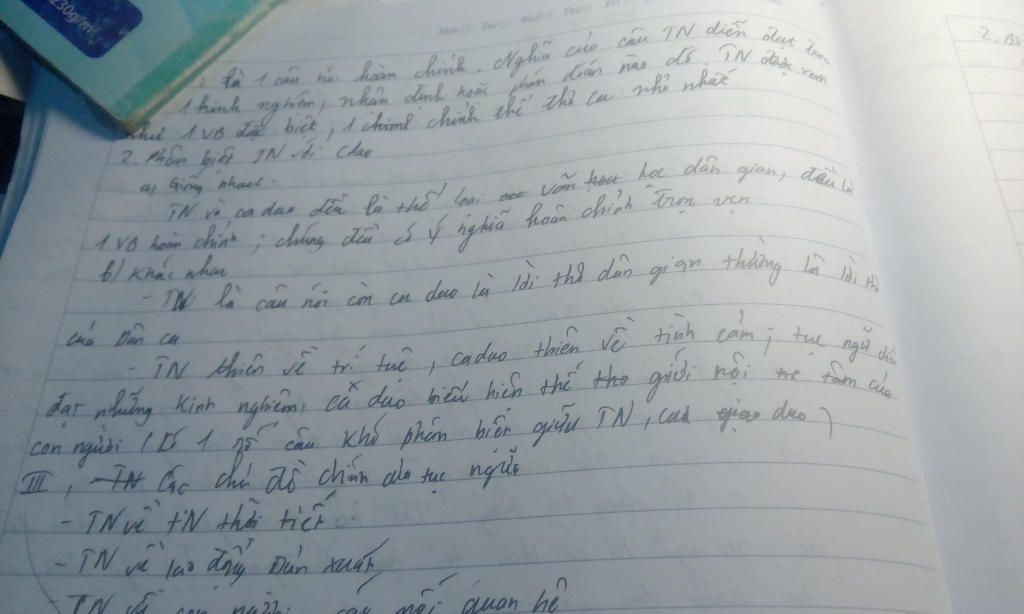 230g/m
là 1 câu nói hoàn chỉnh. Nghĩa của câu TN diễn đạt trọn
1 kinh nghiệm, nhận định hoặc phán đoán nào đó. TN được xem
như 1 VB đặc biệt, 1 chỉnh thể thơ ca nhỏ nhất
2. Phân biệt TN với cdao
a, Giống nhau.
TN và ca dao đều là thể loại văn học dân gian, đều là
1 VB hoàn chỉnh; chúng đều có ý nghĩa hoàn chỉnh trọn vẹn
b/ Khác nhau
- TN: là câu nói còn ca dao là lời thơ dân gian thường là lời thơ
của Dân ca
- TN thiên về trí tuệ, ca dao thiên về tình cảm; tục ngữ diễn
đạt những kinh nghiệm, ca dao biểu hiện thế giới nội tâm của
con người (Có 1 số câu khó phân biệt giữa TN, ca dao)
III, Các chủ đề chính của tục ngữ
- TN về TN thời tiết
- TN về lao động sản xuất
- TN về con người, các mối quan hệ
2. Bà